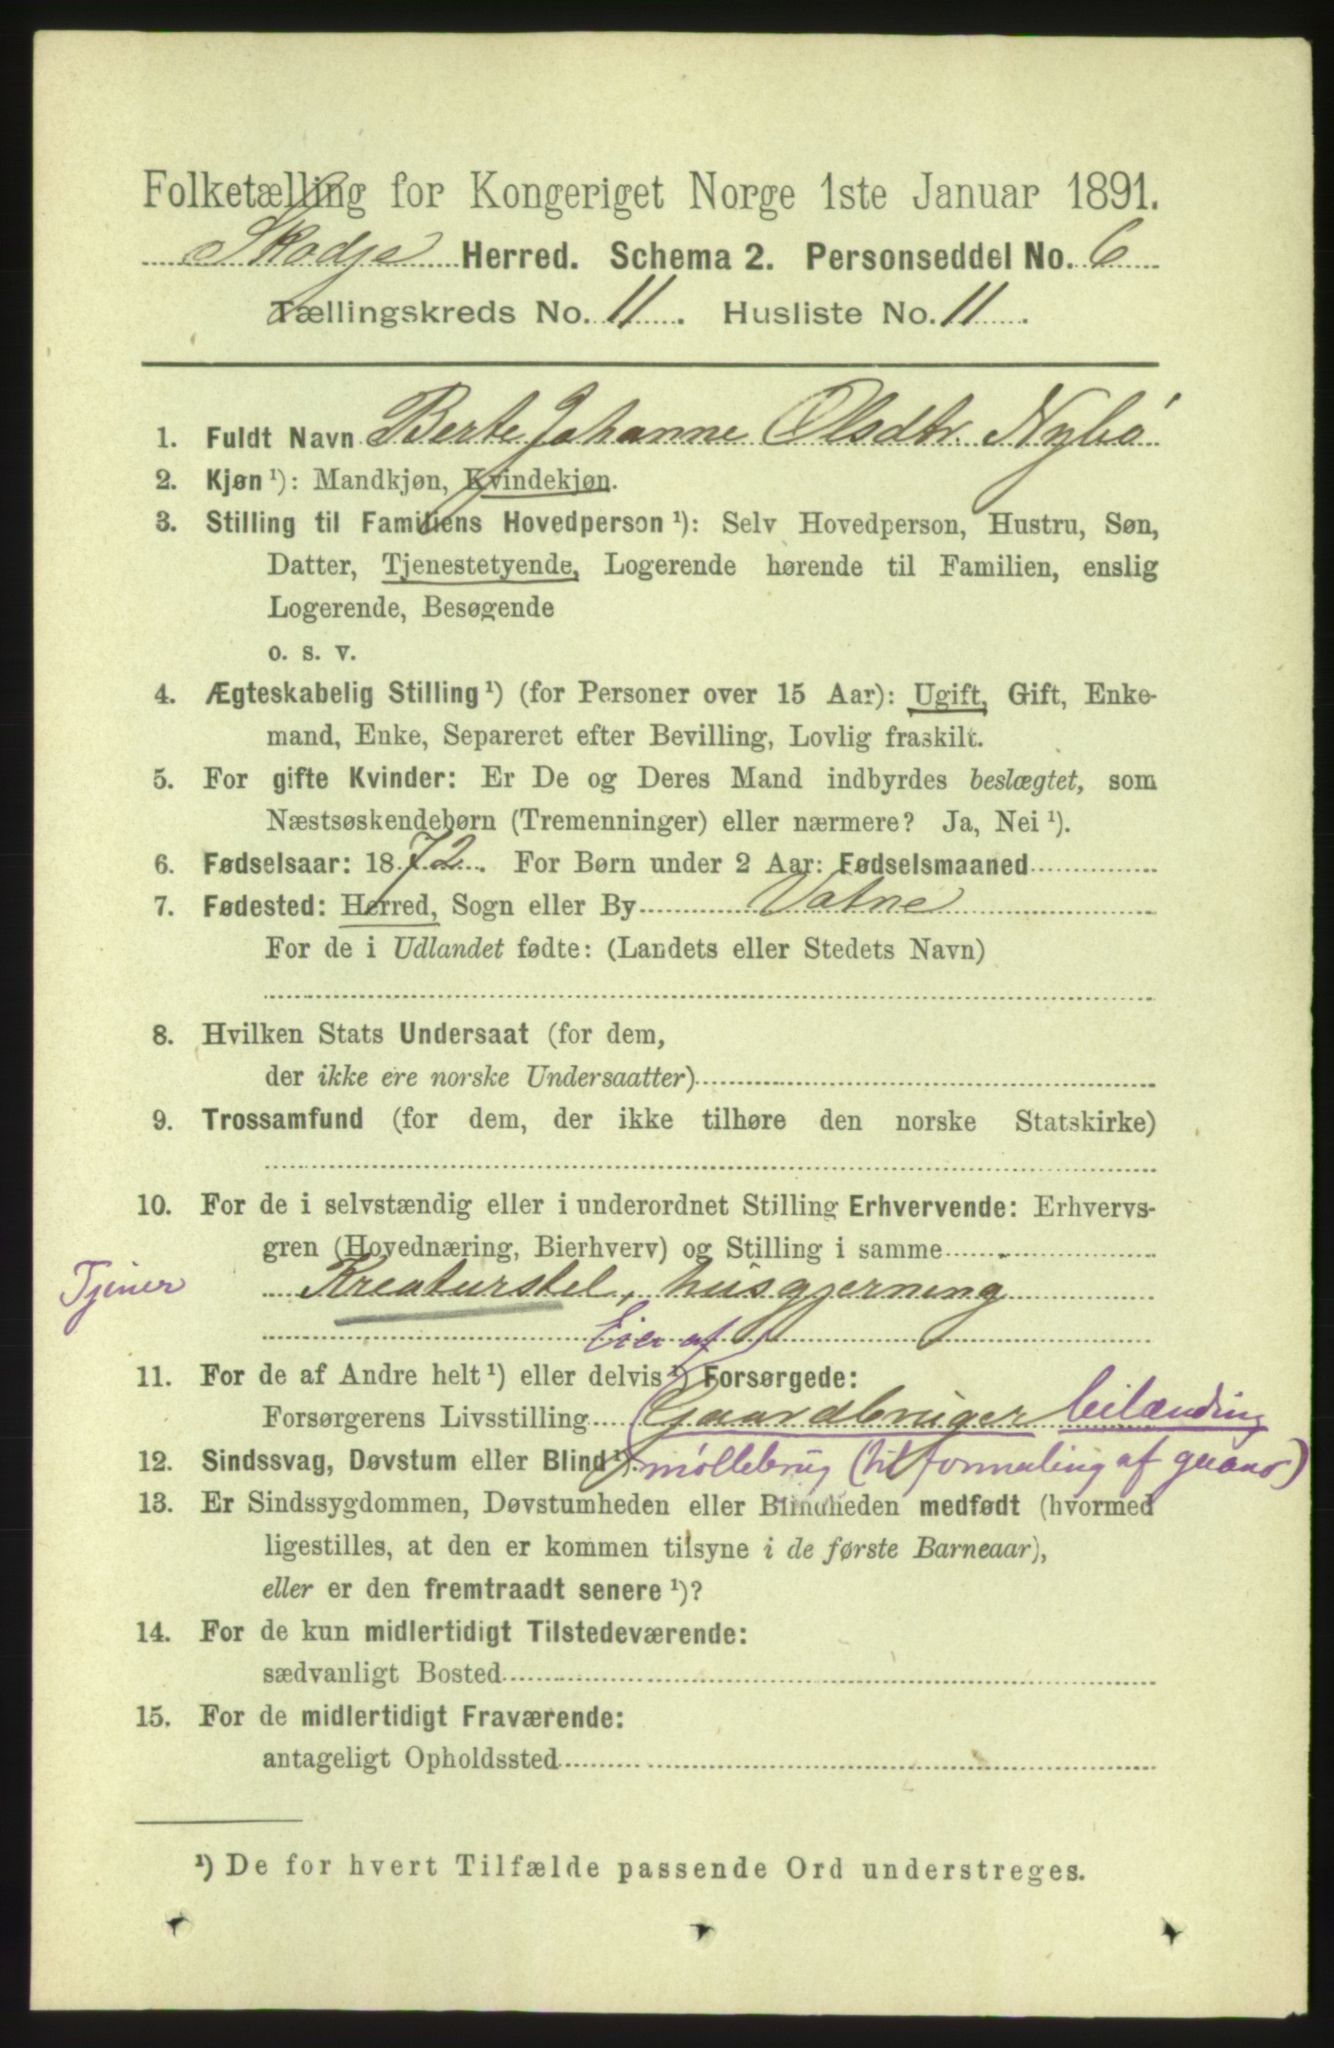 Folketælling for Kongeriget Norge 1ste Januar 1891.
Skodje Herred. Schema 2. Personseddel No. 6
Tællingskreds No. 11. Husliste No. 11.
1. Fuldt Navn Berte Johanne Olsdtr. Nybö
2. Kjøn ¹): Mandkjøn, Kvindekjøn.
3. Stilling til Familiens Hovedperson ¹): Selv Hovedperson, Hustru, Søn,
Datter, Tjenestetyende, Logerende hørende til Familien, enslig
Logerende, Besøgende
o. s. v.
4. Ægteskabelig Stilling ¹) (for Personer over 15 Aar): Ugift, Gift, Enke-
mand, Enke, Separeret efter Bevilling, Lovlig fraskilt.
5. For gifte Kvinder: Er De og Deres Mand indbyrdes beslægtet, som
Næstsøskendebørn (Tremenninger) eller nærmere? Ja, Nei ¹).
6. Fødselsaar: 1872. For Børn under 2 Aar: Fødselsmaaned
7. Fødested: Herred, Sogn eller By Vatne
For de i Udlandet fødte: (Landets eller Stedets Navn)
8. Hvilken Stats Undersaat (for dem,
der ikke ere norske Undersaatter)
9. Trossamfund (for dem, der ikke tilhøre den norske Statskirke)
10. For de i selvstændig eller i underordnet Stilling Erhvervende: Erhvervs-
gren (Hovednæring, Bierhverv) og Stilling i samme
Tjener Kreaturstel, husgjerning
Eier af
11. For de af Andre helt ¹) eller delvis ¹) Forsørgede:
Forsørgerens Livsstilling (Gaardbruger beilænding
12. Sindssvag, Døvstum eller Blind ¹). møllebrug (til formaling af guano)
13. Er Sindssygdommen, Døvstumheden eller Blindheden medfødt (hvormed
ligestilles, at den er kommen tilsyne i de første Barneaar),
eller er den fremtraadt senere ¹)?
14. For de kun midlertidigt Tilstedeværende:
sædvanligt Bosted
15. For de midlertidigt Fraværende:
antageligt Opholdssted
¹) De for hvert Tilfælde passende Ord understreges.